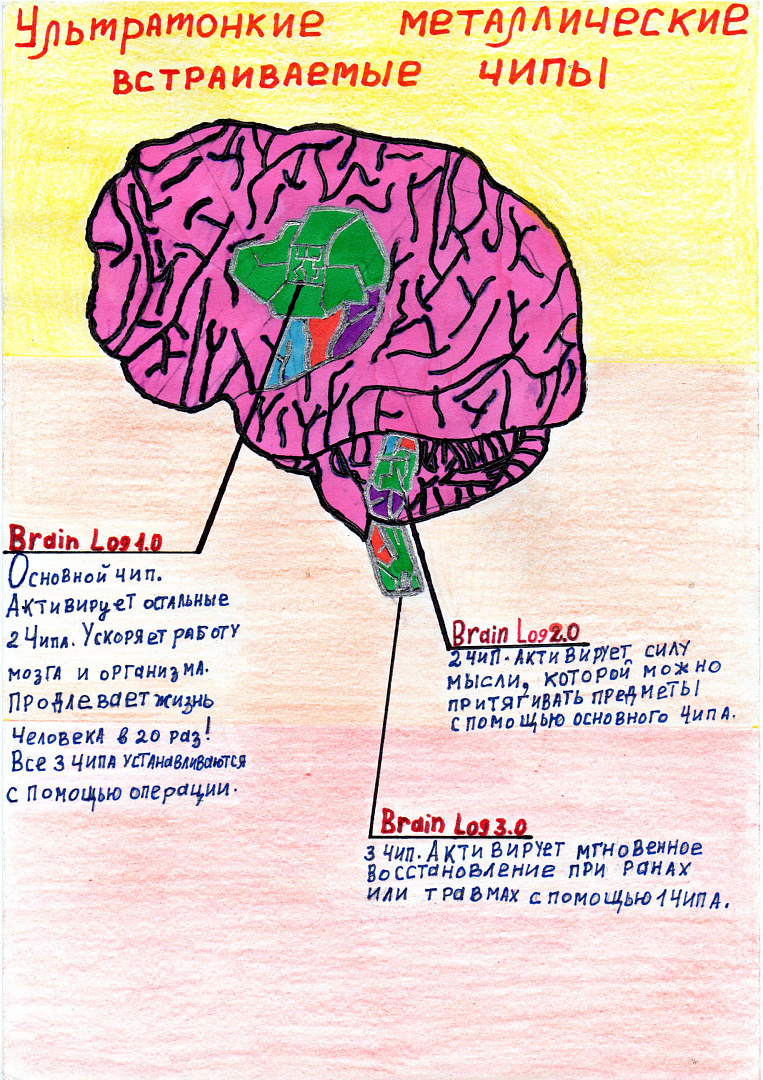 Ультратонкие металлические
встраиваемые чипы
Brain Log 1.0
Основной чип.
Активирует остальные
2 чипа. Ускоряет работу
мозга и организма.
Продлевает жизнь
человека в 20 раз!
Все 3 чипа устанавливаются
с помощью операции.
Brain Log 2.0
2 чип. Активирует силу
мысли, которой можно
притягивать предметы
с помощью основного чипа.
Brain Log 3.0
3 чип. Активирует мгновенное
восстановление при ранах
или травмах с помощью 1 чипа.